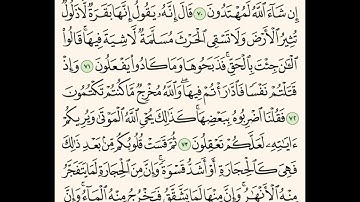 إِن شَآءَ ٱللَّهُ لَمُهْتَدُونَ ٧٠ قَالَ إِنَّهُۥ يَقُولُ إِنَّهَا بَقَرَةٌ لَّا ذَلُولٌ
تُثِيرُ ٱلْأَرْضَ وَلَا تَسْقِى ٱلْحَرْثَ مُسَلَّمَةٌ لَّا شِيَةَ فِيهَا ۚ قَالُوا۟
ٱلْـَٰٔنَ جِئْتَ بِٱلْحَقِّ ۚ فَذَبَحُوهَا وَمَا كَادُوا۟ يَفْعَلُونَ ٧١ وَإِذْ
قَتَلْتُمْ نَفْسًا فَٱدَّٰرَْٰٔتُمْ فِيهَا ۖ وَٱللَّهُ مُخْرِجٌ مَّا كُنتُمْ تَكْتُمُونَ
٧٢ فَقُلْنَا ٱضْرِبُوهُ بِبَعْضِهَا ۚ كَذَٰلِكَ يُحْىِ ٱللَّهُ ٱلْمَوْتَىٰ وَيُرِيكُمْ
ءَايَٰتِهِۦ لَعَلَّكُمْ تَعْقِلُونَ ٧٣ ثُمَّ قَسَتْ قُلُوبُكُم مِّنۢ بَعْدِ ذَٰلِكَ
فَهِىَ كَٱلْحِجَارَةِ أَوْ أَشَدُّ قَسْوَةً ۚ وَإِنَّ مِنَ ٱلْحِجَارَةِ لَمَا يَتَفَجَّرُ
مِنْهُ ٱلْأَنْهَٰرُ ۚ وَإِنَّ مِنْهَا لَمَا يَشَّقَّقُ فَيَخْرُجُ مِنْهُ ٱلْمَآءُ ۚ وَإِنَّ